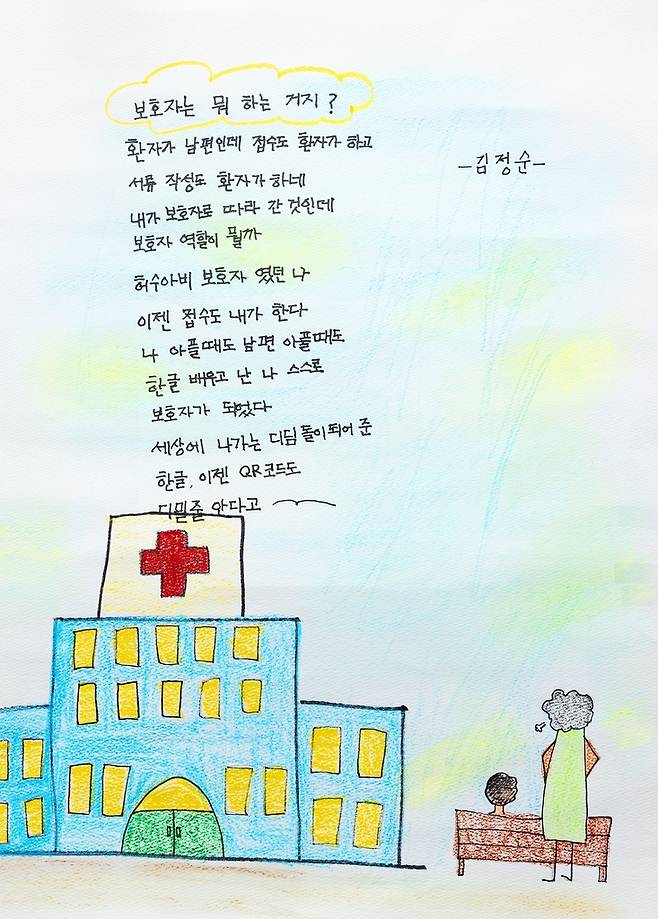 보호자는 뭐 하는 거지?
-김정순-
환자가 남편인데 접수도 환자가 하고
서류 작성도 환자가 하네
내가 보호자로 따라 간 것인데
보호자 역할이 뭘까
허수아비 보호자 였던 나
이젠 접수도 내가 한다
나 아플때도 남편 아플때도
한글 배우고 난 나 스스로
보호자가 되었다
세상에 나가는 디딤돌이 되어 준
한글, 이젠 QR코드도
디밀줄 안다고